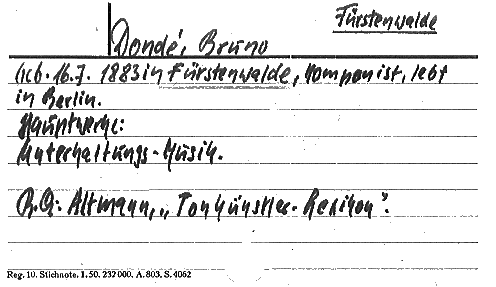 Fürstenwalde
Dondé, Bruno
Geb. 16.7. 1883 in Fürstenwalde, Komponist, lebt
in Berlin.
Hauptwerke:
Unterhaltungs-Musik.
R.Q.: Altmann, „Tonkünstler-Lexikon".
Reg. 10. Stichnote. 1. 50. 232 000. A. 803. S. 4062